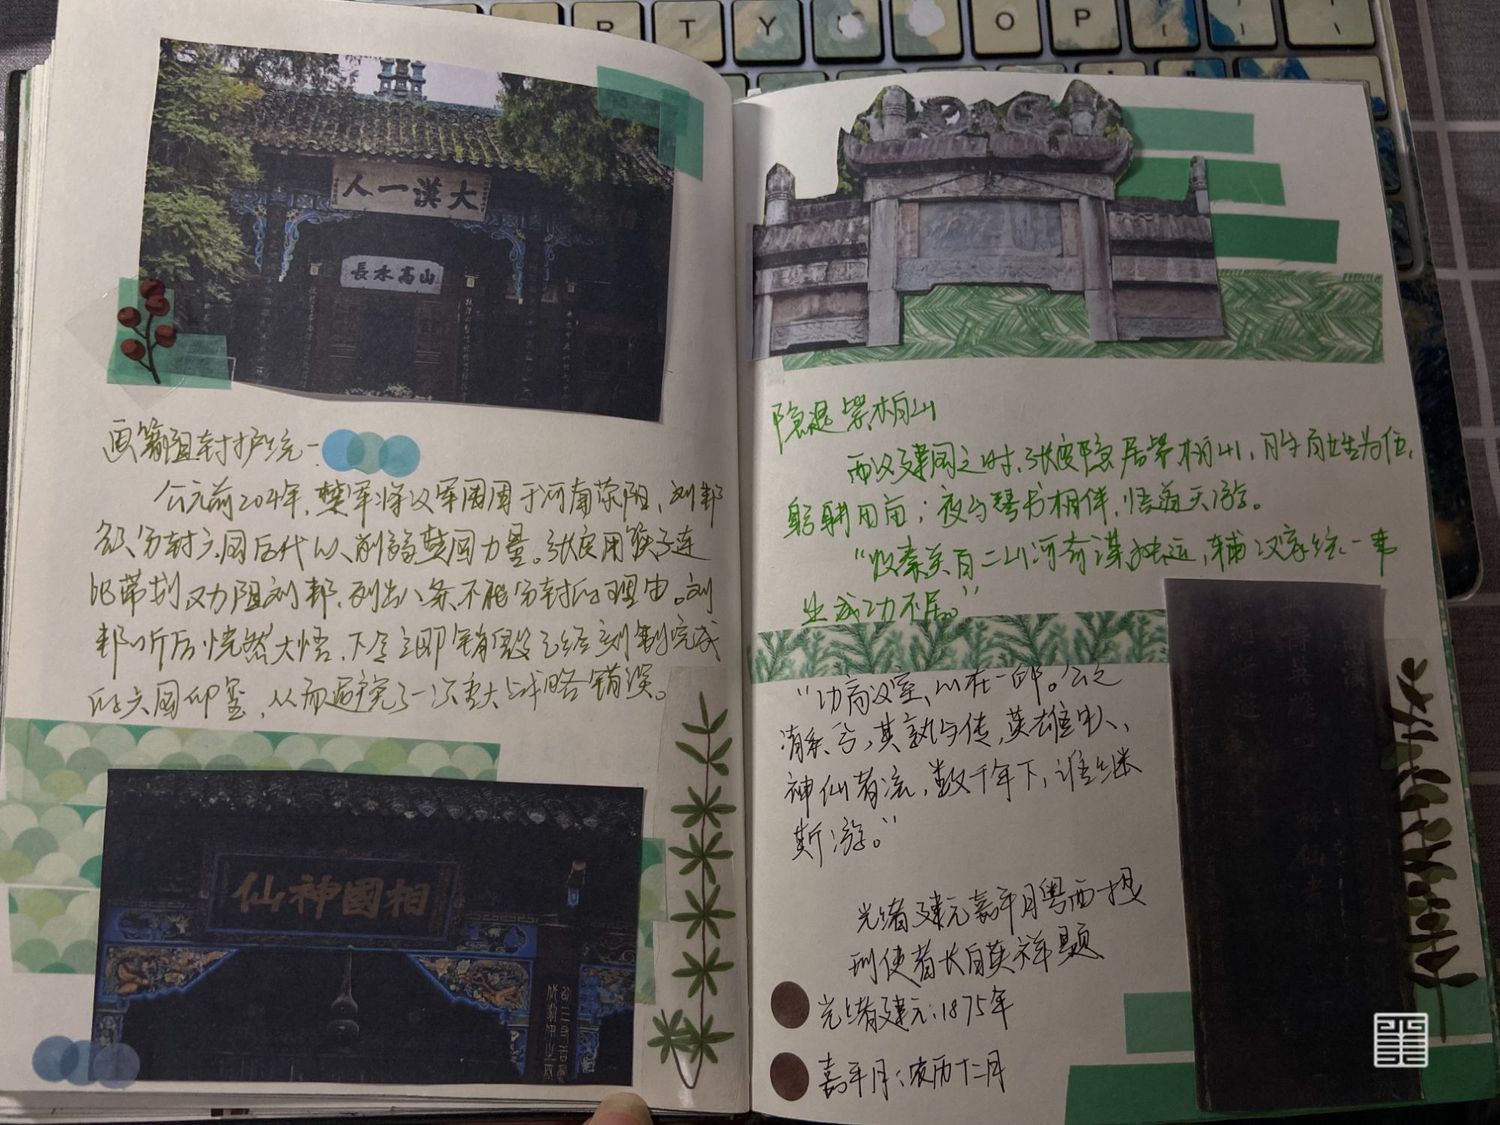 大漢一人
山高水長
画箸阻封护统一
公元前204年,楚军将汉军围困于河南荥阳,刘邦
欲分封六国后代以削弱楚国力量。张良用筷子连
比带划力阻刘邦,列出八条不能分封的理由。刘
邦听后恍然大悟,下令立即销毁已经刻制完成
的六国印玺,从而避免了一次重大战略错误。
相國神仙
隐退紫柏山
西汉建国之时,张良隐居紫柏山,日与百姓为伍,
躬耕田亩;夜与琴书相伴,悟道天游。
“收秦关百二山河奇谋独运,辅汉家统一事
业成功不居。”
“功高汉室,以在一邱。公之
消系兮,其孰与俦,英雄
神仙者流,数千年下,谁继
斯游。”
光绪建元嘉平月粤西
使者长白英祥题
光绪建元:1875年
嘉平月:农历十二月